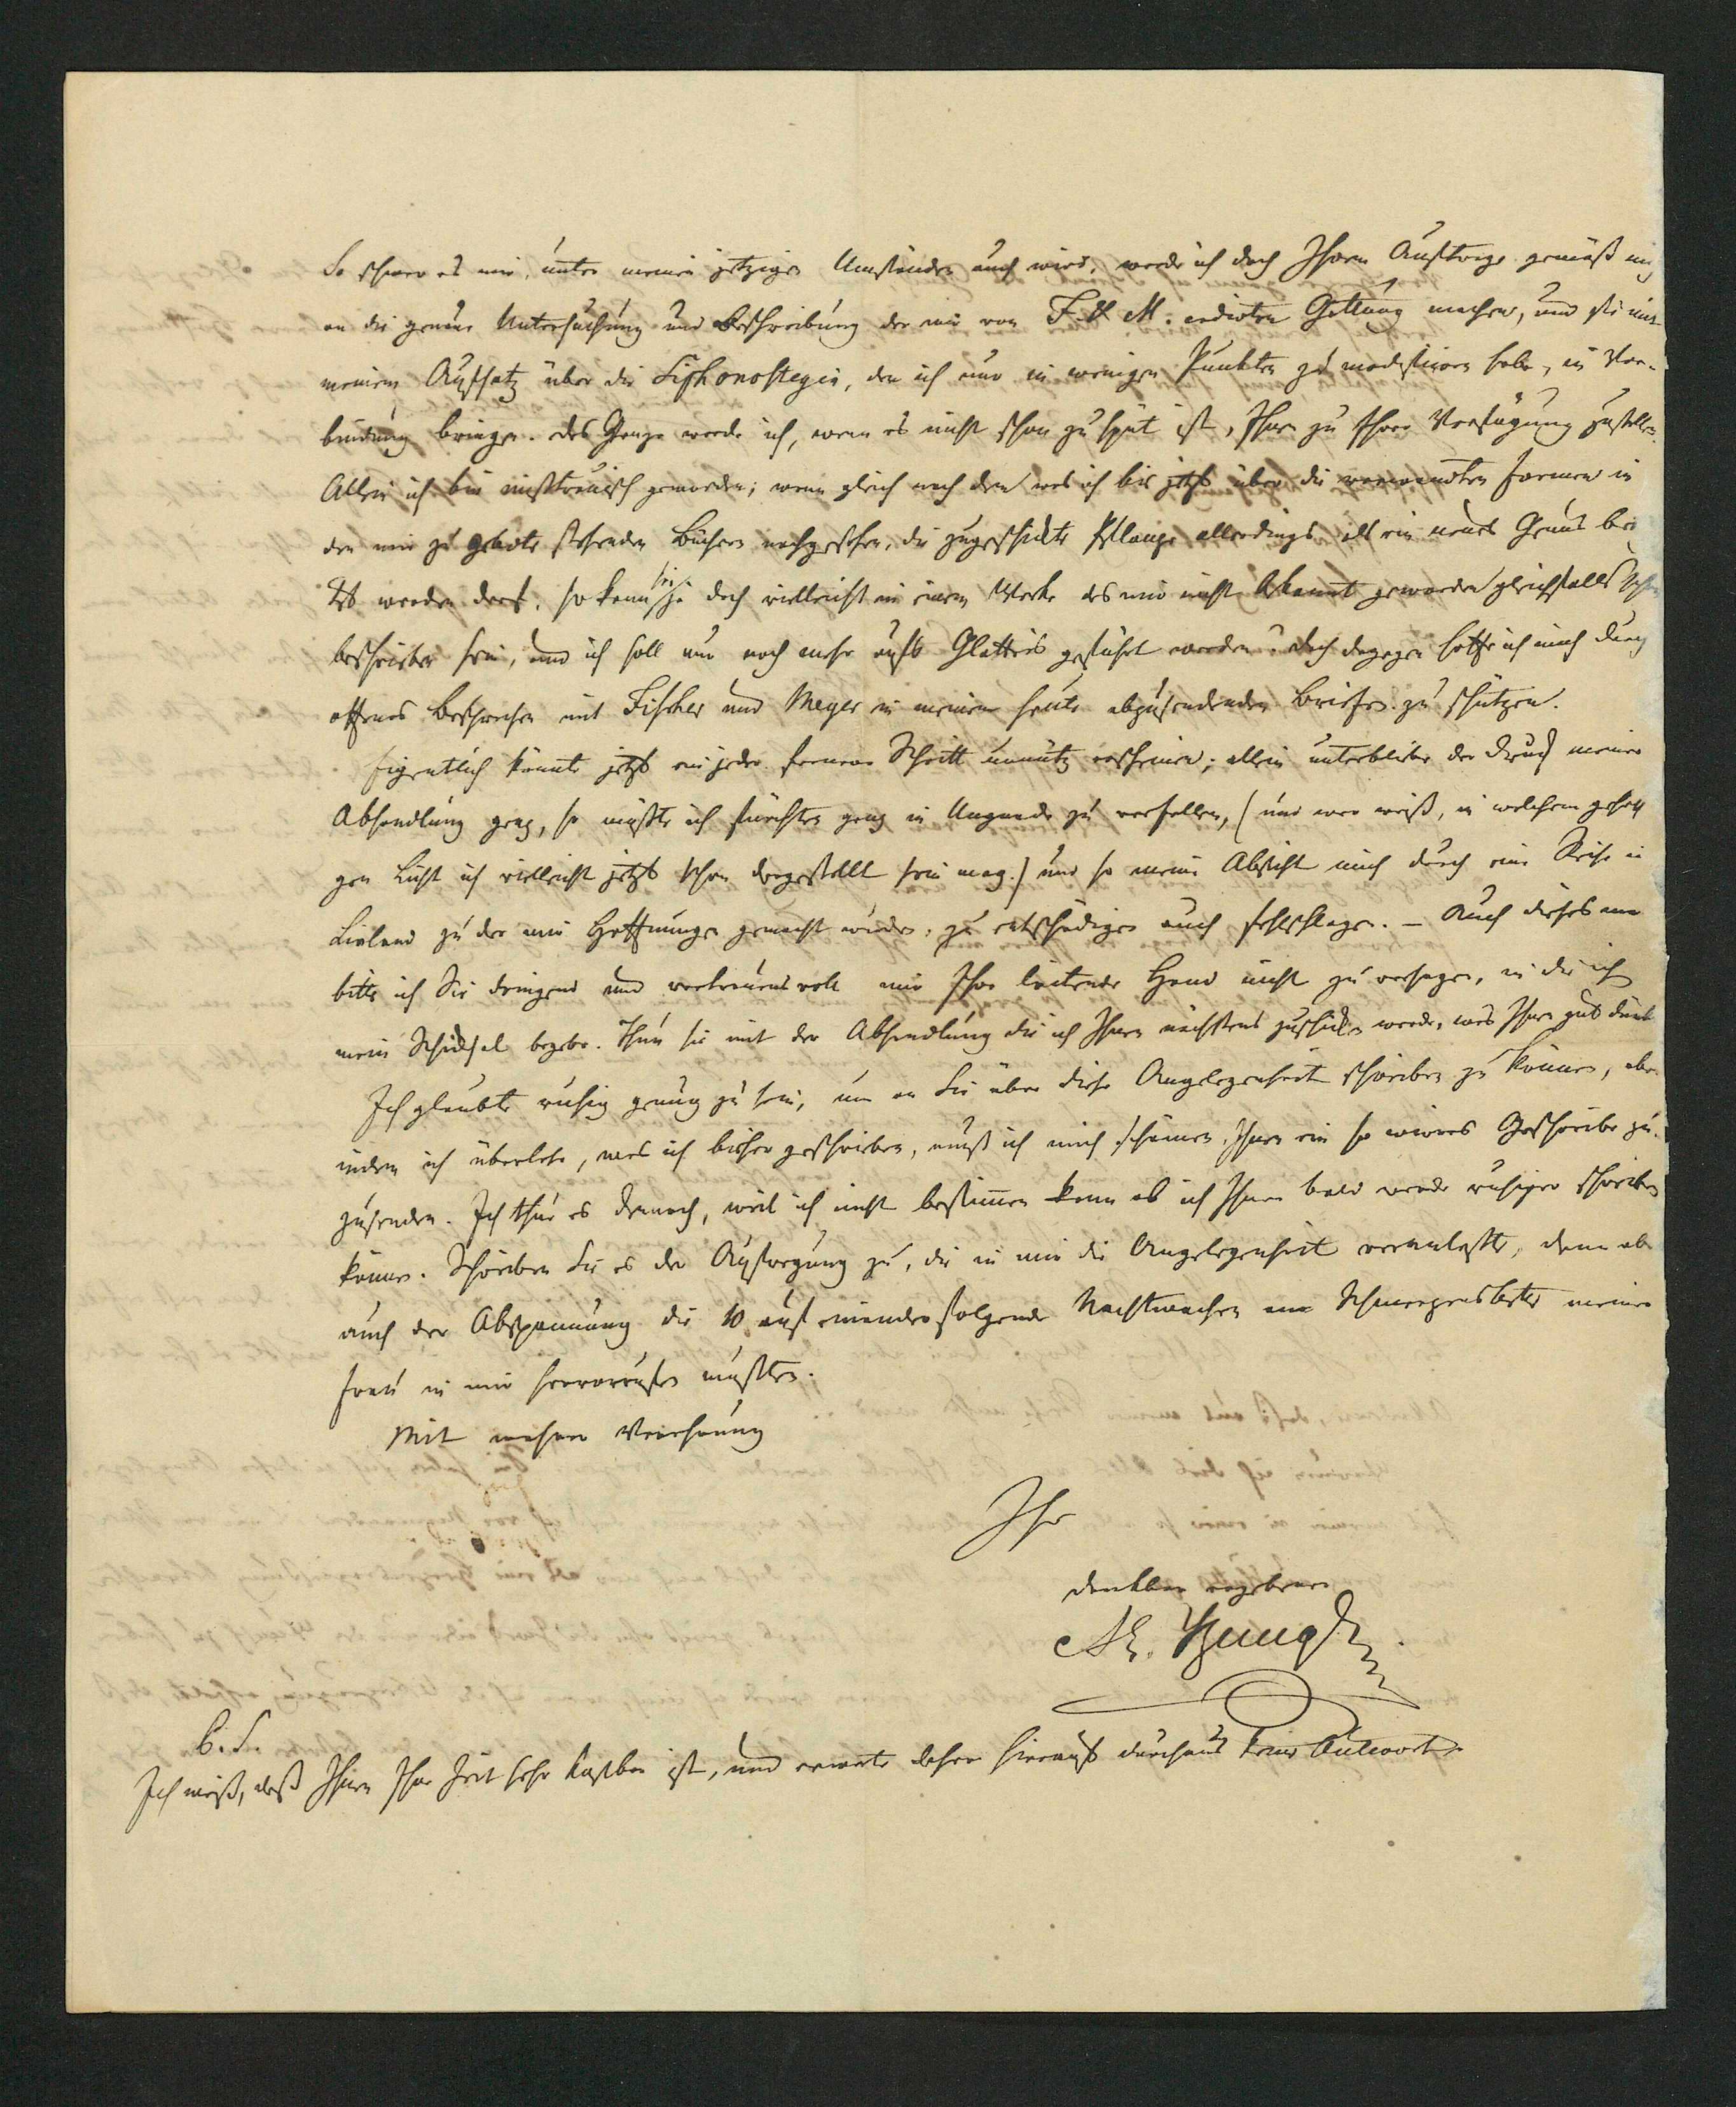 So schwer es mir, unter meinen jetzigen Umständen auch wird, werde ich doch Ihrem Auftrage gemäß mich
an die genaue Untersuchung und Beschreibung der mir von F. & M. cedirten Gattung machen, und sie mit
meinem Aufsatz über die Siphonostegia, den ich nur in wenigen Punkten zu modificiren habe, in Ver-
bindung bringen. Das Ganze werde ich, wenn es nicht schon zu spät ist, Ihnen zu Ihrer Verfügung zustellen.
Allein ich bin mißtrauisch geworden; wenn gleich nach dem was ich bis jetzt über die verwandten Formen in
den mir zu Gebote stehenden Büchern nachgesehen, die zugeschickte Pflanze allerdings als ein neues Genus
werden darf, so kann sie ja doch vielleicht in einem Werke das mir nicht bekannt geworden gleichfalls schon
beschrieben sein, und ich soll nur noch mehr aufs Glatteis geführt werden? Doch dagegen hoffe ich mich durch
offenes Besprechen mit Fischer und Meyer in meinem heute abzusendenden Briefe zu schützen.
Eigentlich könnte jetzt ein jeder fernere Schritt unnütz erscheinen; allein unterbliebe der Druck meiner
Abhandlung ganz, so müßte ich fürchten ganz in Ungnade zu verfallen, (und wer weiß, in welchem gehäßi-
gen Licht ich vielleicht jetzt schon dargestellt sein mag.) und so meine Absicht mich durch eine Reise in
Livland zu der mir Hoffnungen gemacht wurden, zu entschädigen auch fehlschlagen. – Auch dieses mal
bitte ich Sie dringend und vertrauensvoll mir Ihre leitende Hand nicht zu versagen, in die ich
mein Schicksal begebe. Thun sie mit der Abhandlung die ich Ihnen nächstens zuschicken werde, was Ihnen gut dünkt.
Ich glaubte ruhig genug zu sein, um an Sie über diese Angelegenheit schreiben zu können, aber
indem ich überlese, was ich bisher geschrieben, muß ich mich schämen, Ihnen ein so wirres Geschreibe zu-
zusenden. Ich thue es dennoch, weil ich nicht bestimmen kann ob ich Ihnen bald werde ruhiger schreiben
können. Schreiben Sie es der Aufregung zu, die in mir die Angelegenheit veranlaßte, dann aber
auch der Abspannung die 10 auf einander folgende Nachtwachen am Schmerzensbette meiner
Frau in mir hervorrufen mußten.
Mit wahrer Verehrung
Ihr
dankbar ergebener
Al. Bunge.
P. S.
Ich weiß, daß Ihnen Ihre Zeit sehr kostbar ist, und erwarte daher hierauf durchaus keine Antwort.